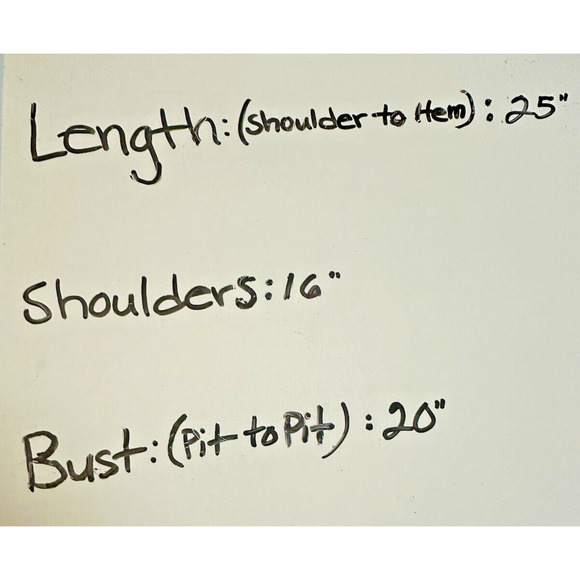 Length: (Shoulder to Hem): 25"
Shoulders: 16"
Bust: (Pit to Pit): 20"